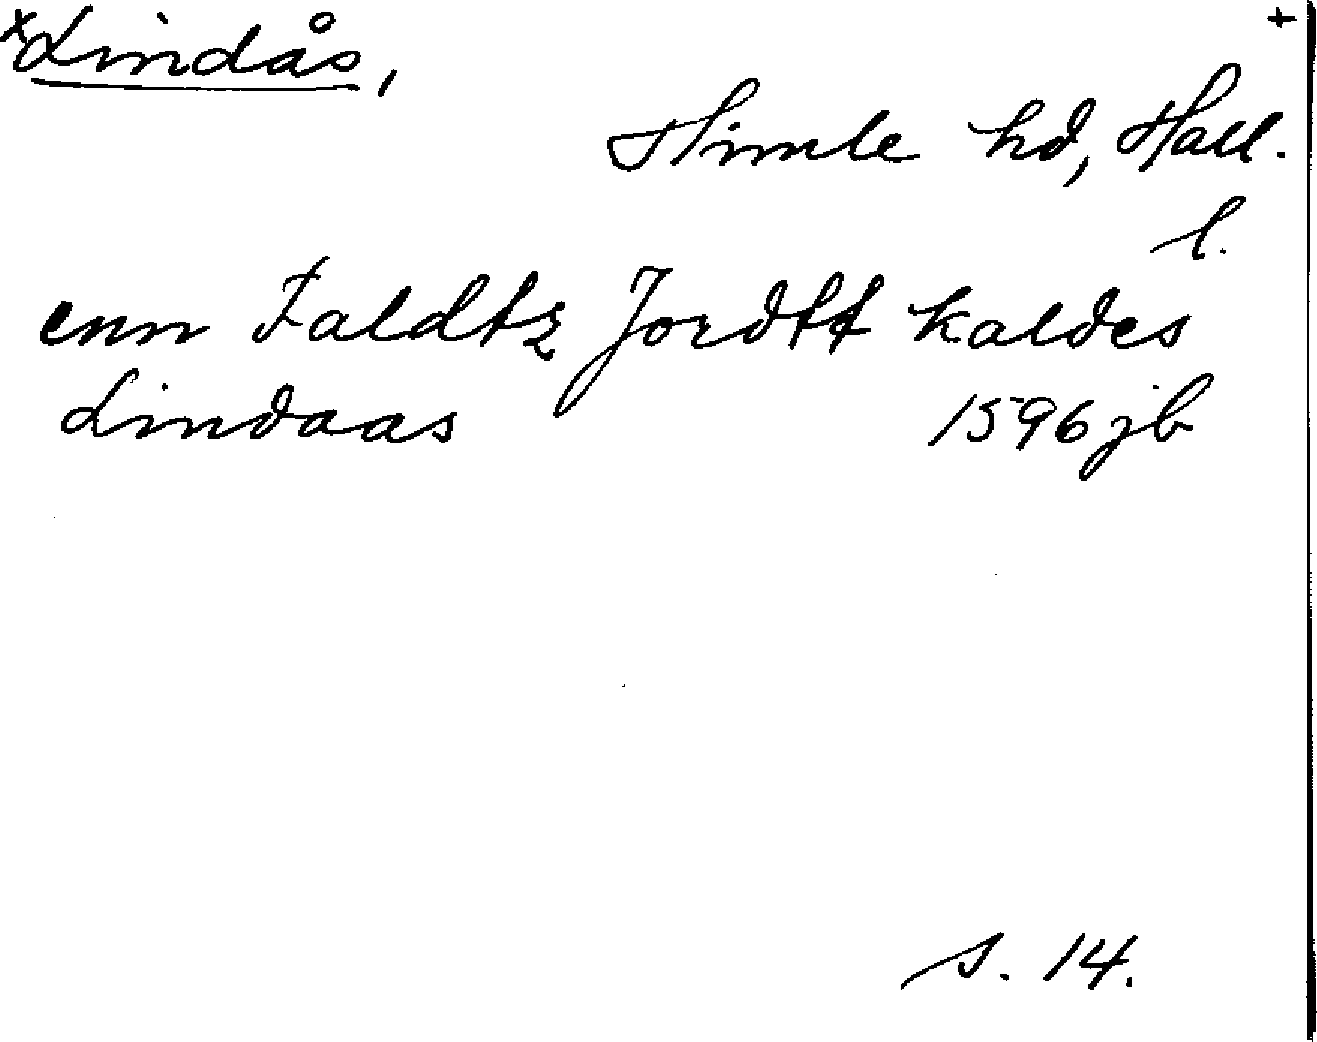 xLindås, +
Himle hd, Hall.
l.
enn Faldtz Jordtt kaldes
Lindaas 1596 jb
s. 14.